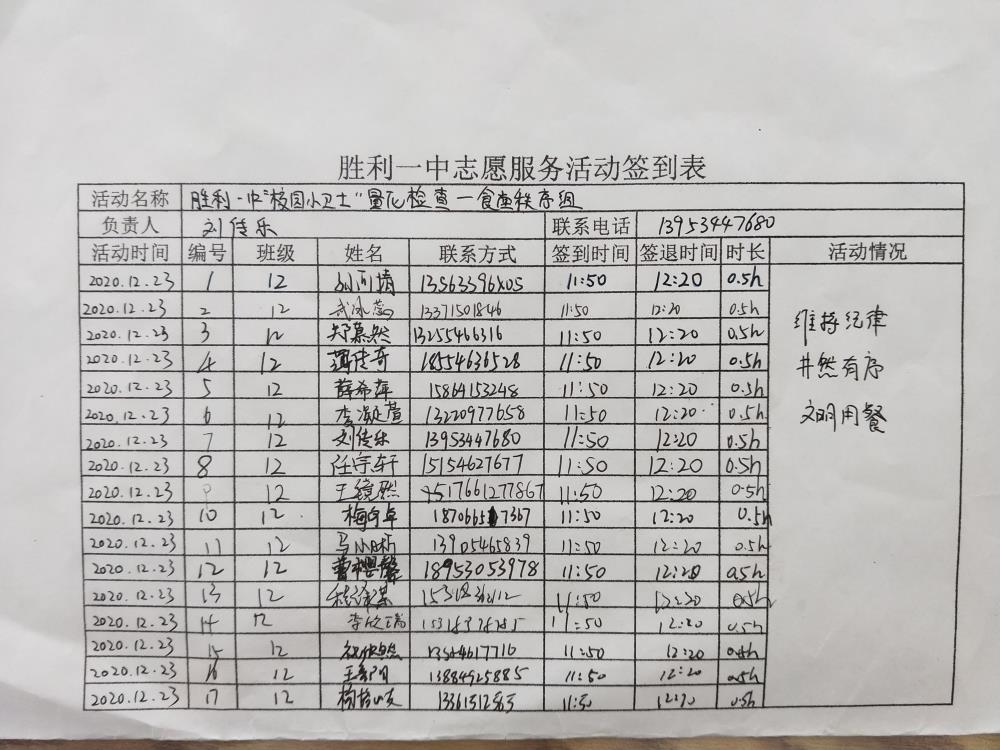 胜利一中志愿服务活动签到表
活动名称 胜利一中"校园小卫士"量化检查一食堂秩序组
负责人 刘传乐 联系电话 13953447680
活动时间 编号 班级 姓名 联系方式 签到时间 签退时间 时长 活动情况
2020.12.23 1 12 11:50 12:20 0.5h
2020.12.23 2 12 13371501846 11:50 12:20 0.5h
2020.12.23 3 12 郑慕然 13255466316 11:50 12:20 0.5h
2020.12.23 4 12 18554636528 11:50 12:20 0.5h
2020.12.23 5 12 薛希萍 15864153248 11:50 12:20 0.5h
2020.12.23 6 12 李凝萱 13220977658 11:50 12:20 0.5h
2020.12.23 7 12 刘传乐 13953447680 11:50 12:20 0.5h
2020.12.23 8 12 任宇轩 15154627677 11:50 12:20 0.5h
2020.12.23 9 12 11:50 12:20 0.5h
2020.12.23 10 12 11:50 12:20 0.5h
2020.12.23 11 12 13905465839 11:50 12:20 0.5h
2020.12.23 12 12 曹樱馨 18953053978 11:50 12:20 0.5h
2020.12.23 13 12 11:50 12:20 0.5h
2020.12.23 14 12 李欣瑞 11:50 12:20 0.5h
2020.12.23 15 12 11:50 12:20 0.5h
2020.12.23 16 12 13884925885 11:50 12:20 0.5h
2020.12.23 17 12 11:50 12:20 0.5h
维持纪律
井然有序
文明用餐